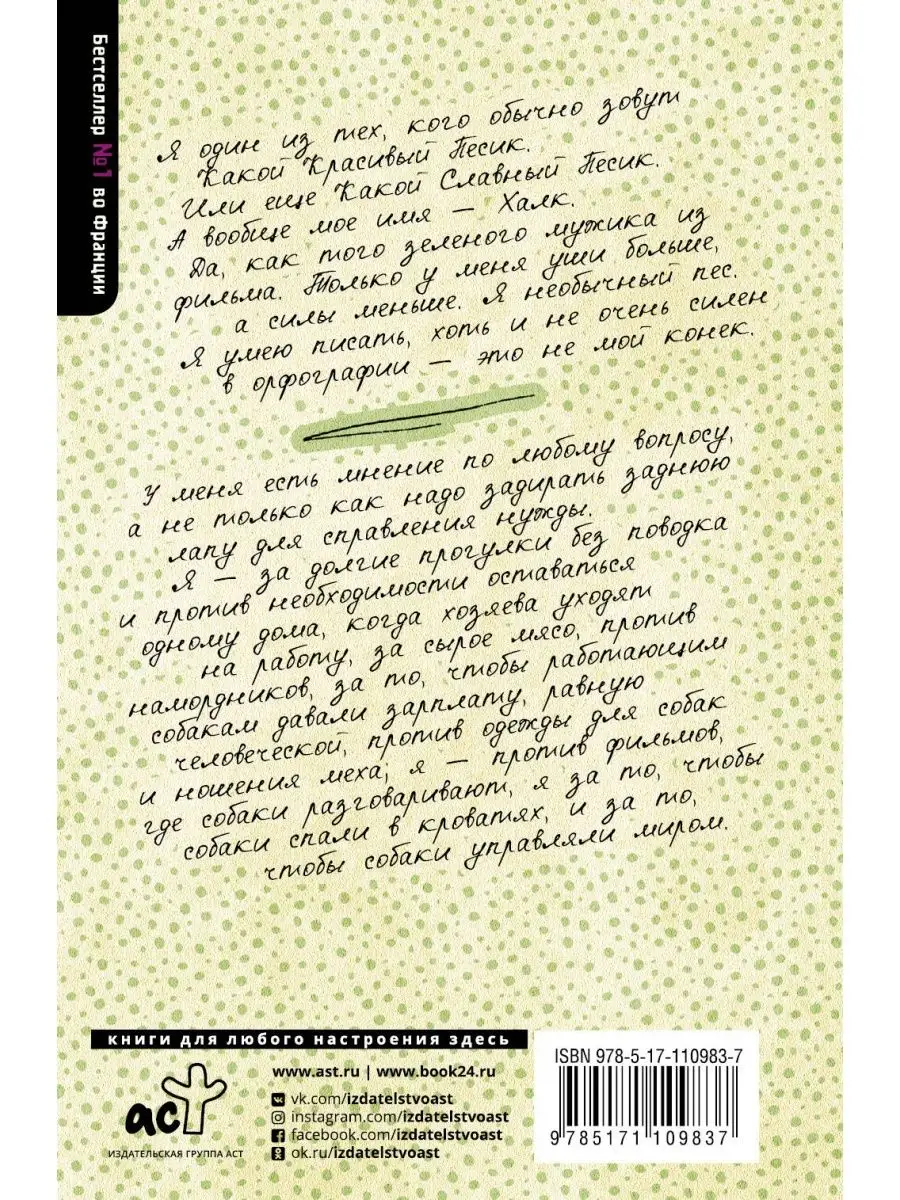 Бестселлер №1 во Франции
Я один из тех, кого обычно зовут
Какой Красивый Песик.
Или еще Какой Славный Песик.
А вообще мое имя — Халк.
Да, как того зеленого мужика из
фильма. Только у меня уши больше,
а силы меньше. Я необычный пес.
Я умею писать, хоть и не очень силен
в орфографии — это не мой конек.
У меня есть мнение по любому вопросу,
а не только как надо задирать заднюю
лапу для справления нужды.
Я — за долгие прогулки без поводка
и против необходимости оставаться
одному дома, когда хозяева уходят
на работу, за сырое мясо, против
намордников, за то, чтобы работающим
собакам давали зарплату, равную
человеческой, против одежды для собак
и ношения меха; я — против фильмов,
где собаки разговаривают, я за то, чтобы
собаки спали в кроватях, и за то,
чтобы собаки управляли миром.
книги для любого настроения здесь
аст
ИЗДАТЕЛЬСКАЯ ГРУППА АСТ
www.ast.ru | www.book24.ru
vk.com/izdatelstvoast
instagram.com/izdatelstvoast
facebook.com/izdatelstvoast
ok.ru/izdatelstvoast
ISBN 978-5-17-110983-7
9 785171 109837